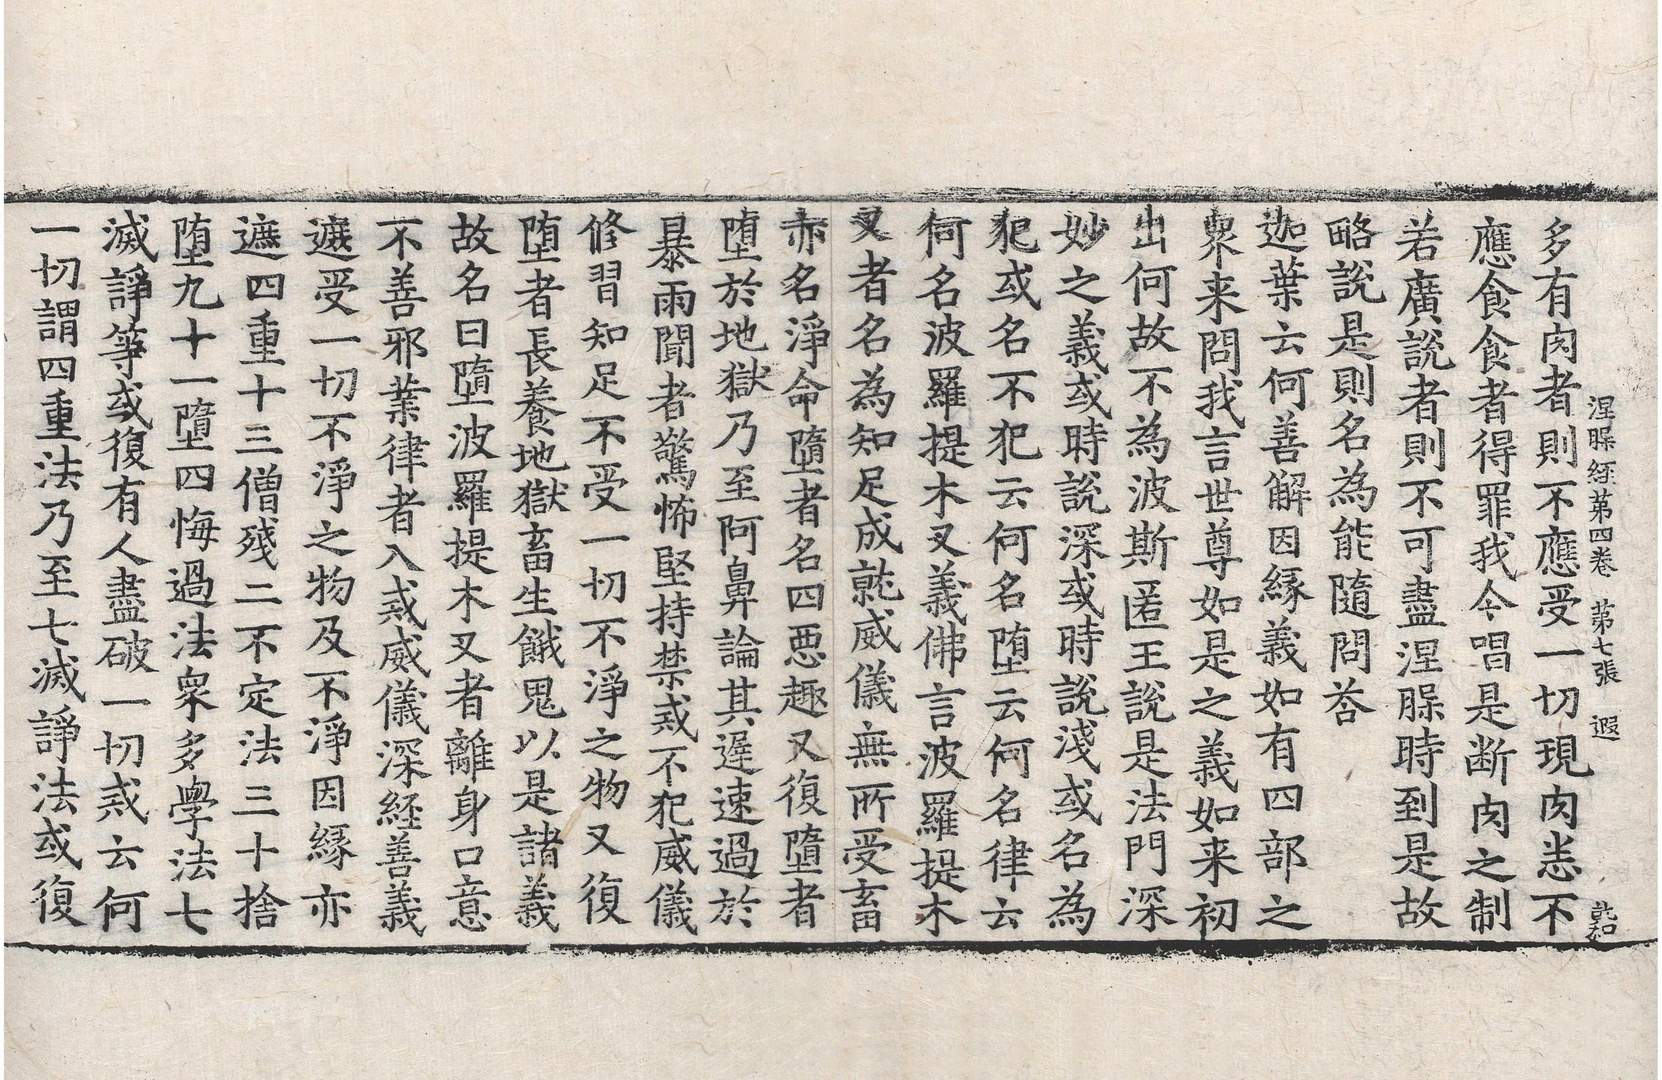 涅槃經第四卷 第七張 遐
多有肉者則不應受一切現肉悉不
應食食者得罪我今唱是断肉之制
若廣說者則不可盡涅槃時到是故
略說是則名為能隨問荅
迦葉云何善解因縁義如有四部之
衆来問我言世尊如是之義如来初
出何故不為波斯匿王說是法門深
妙之義或時說深或時說淺或名為
犯或名不犯云何名堕云何名律云
何名波羅提木叉義佛言波羅提木
叉者名為知足成就威儀無所受畜
亦名淨命墮者名四惡趣又復墮者
堕於地獄乃至阿鼻論其遲速過於
暴雨聞者驚怖堅持禁戒不犯威儀
修習知足不受一切不淨之物又復
堕者長養地獄畜生餓鬼以是諸義
故名曰墮波羅提木叉者離身口意
不善邪業律者入戒威儀深経善義
遮受一切不淨之物及不淨因縁亦
遮四重十三僧残二不定法三十捨
堕九十一墮四悔過法衆多學法七
滅諍等或復有人盡破一切戒云何
一切謂四重法乃至七滅諍法或復